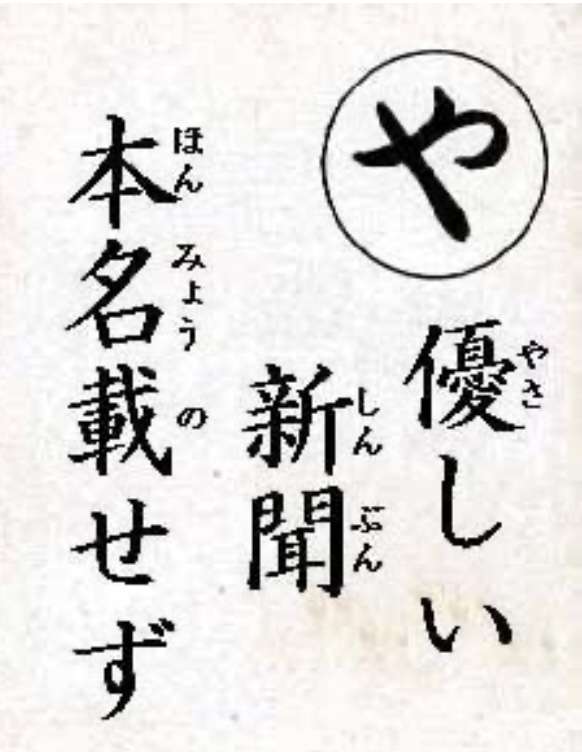 や
優しい
やさ
新聞
しんぶん
本名載せず
ほんみょうの